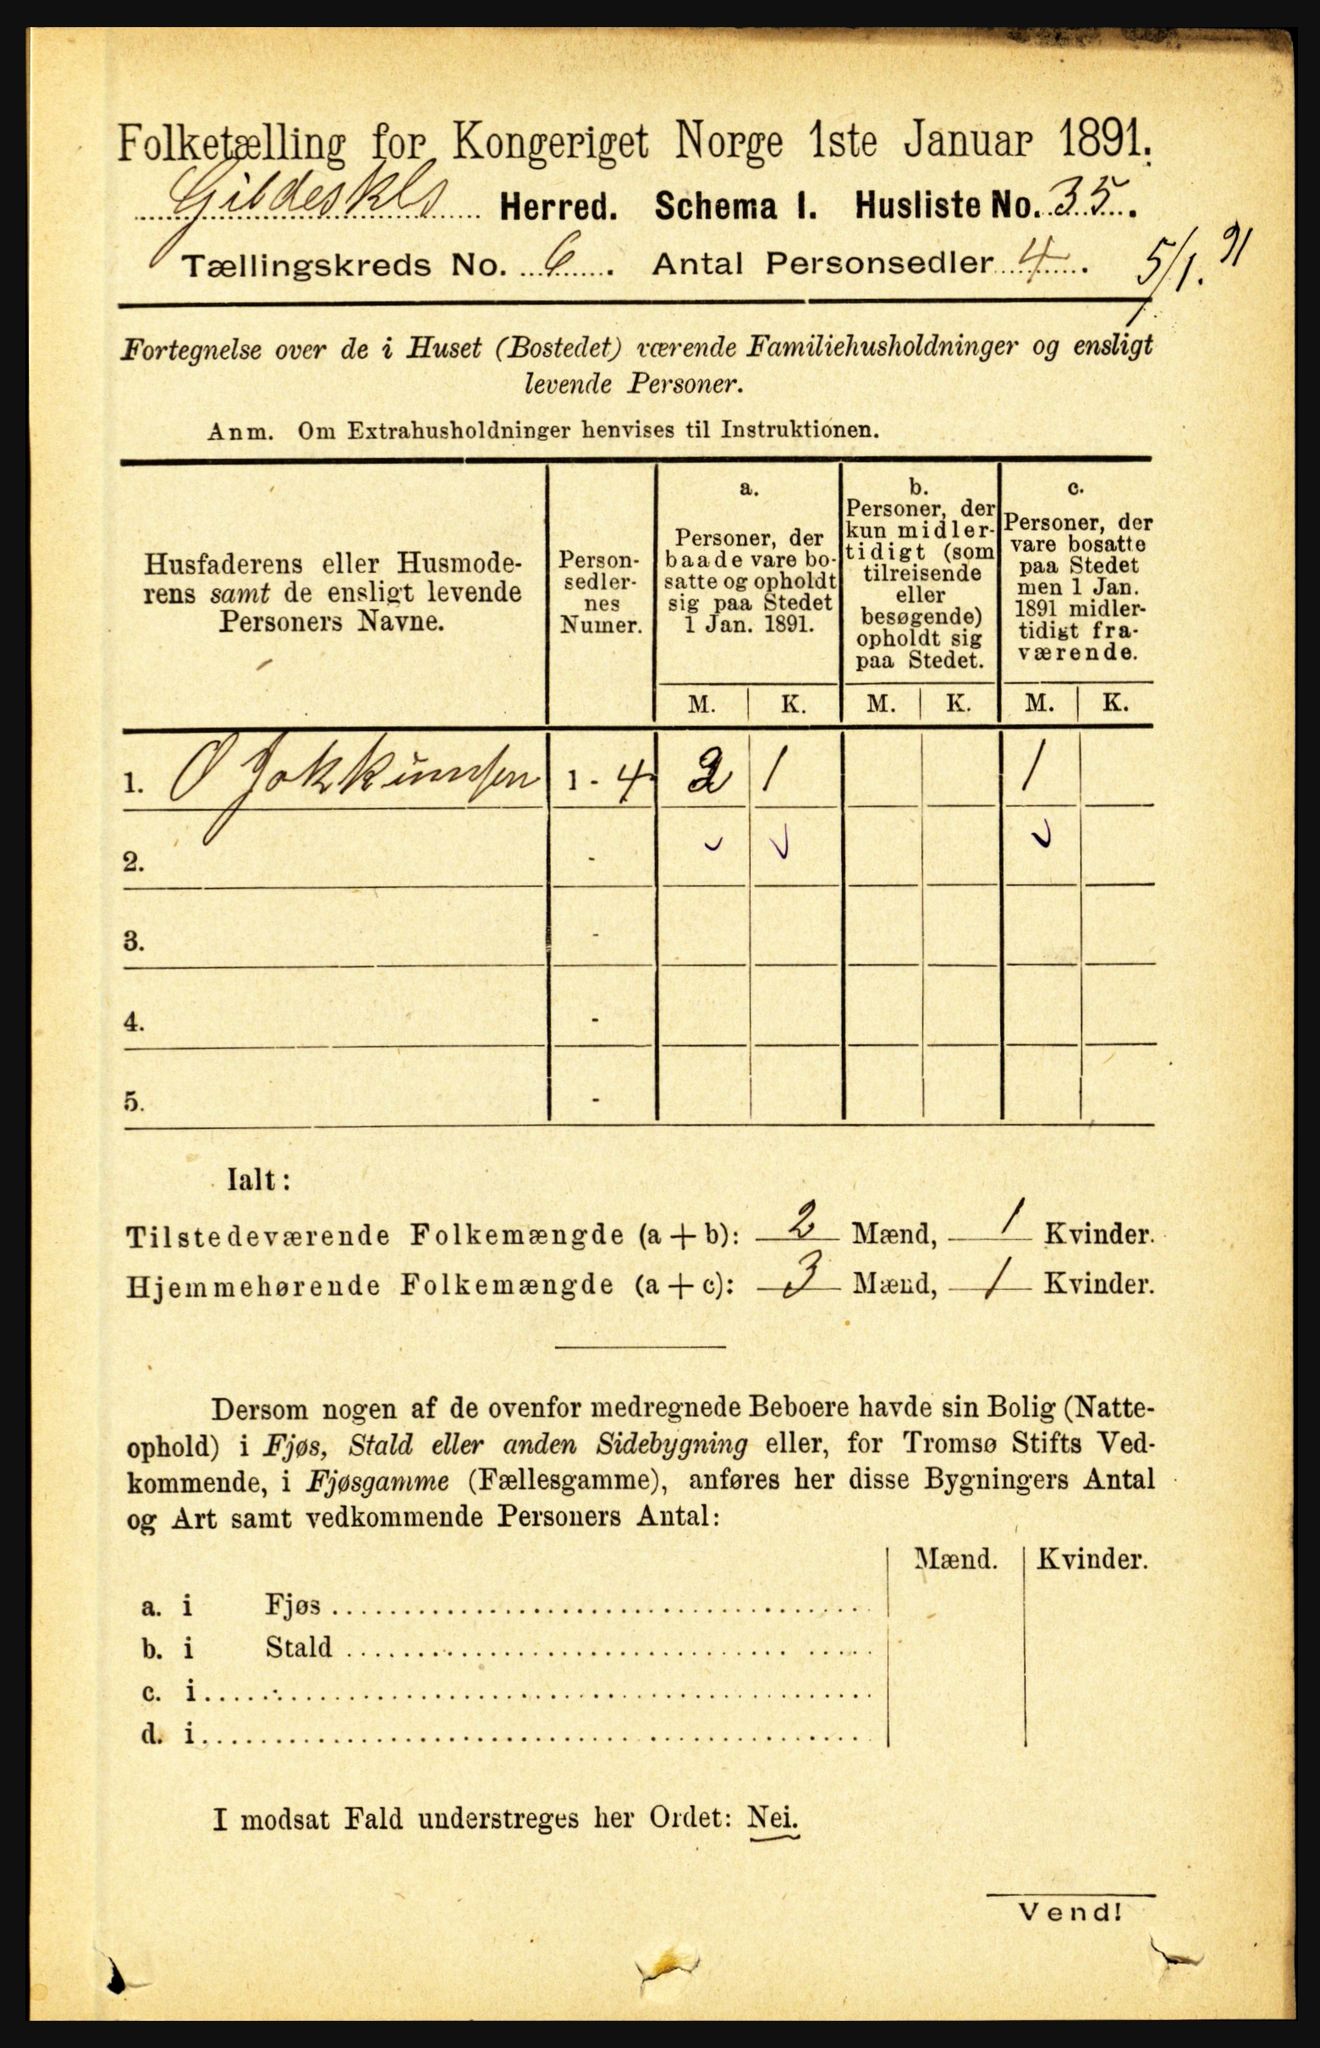 Folketælling for Kongeriget Norge 1ste Januar 1891.
Gildeskls Herred. Schema I. Husliste No. 35.
Tællingskreds No. 6. Antal Personsedler 4. 5/1. 91
Fortegnelse over de i Huset (Bostedet) værende Familiehusholdninger og ensligt
levende Personer.
Anm. Om Extrahusholdninger henvises til Instruktionen.
Husfaderens eller Husmode-
rens samt de ensligt levende
Personers Navne.
Person-
sedler-
nes
Numer.
a.
Personer, der
baade vare bo-
satte og opholdt
sig paa Stedet
1 Jan. 1891.
b.
Personer, der
kun midler-
tidigt (som
tilreisende
eller
besøgende)
opholdt sig
paa Stedet.
c.
Personer, der
vare bosatte
paa Stedet
men 1 Jan.
1891 midler-
tidigt fra-
værende.
M. K. M. K. M. K.
1. O Jokkumsen 1 - 4 2 1 1
2. -
3. -
4. -
5. -
Ialt:
Tilstedeværende Folkemængde (a + b): 2 Mænd, 1 Kvinder.
Hjemmehørende Folkemængde (a + c): 3 Mænd, 1 Kvinder.
Dersom nogen af de ovenfor medregnede Beboere havde sin Bolig (Natte-
ophold) i Fjøs, Stald eller anden Sidebygning eller, for Tromsø Stifts Ved-
kommende, i Fjøsgamme (Fællesgamme), anføres her disse Bygningers Antal
og Art samt vedkommende Personers Antal:
Mænd. Kvinder.
a. i Fjøs
b. i Stald
c. i
d. i
I modsat Fald understreges her Ordet: Nei.
Vend!